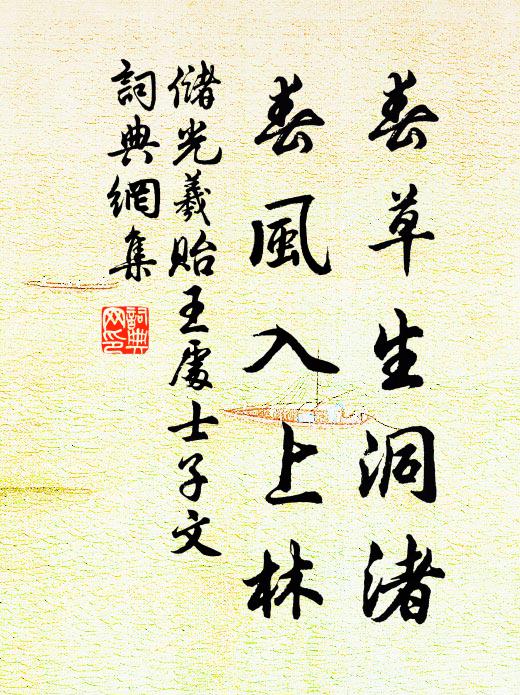 春草生洞渚
春風入上林
儲光羲貽王處士子文
詞典網集
詞典
网印